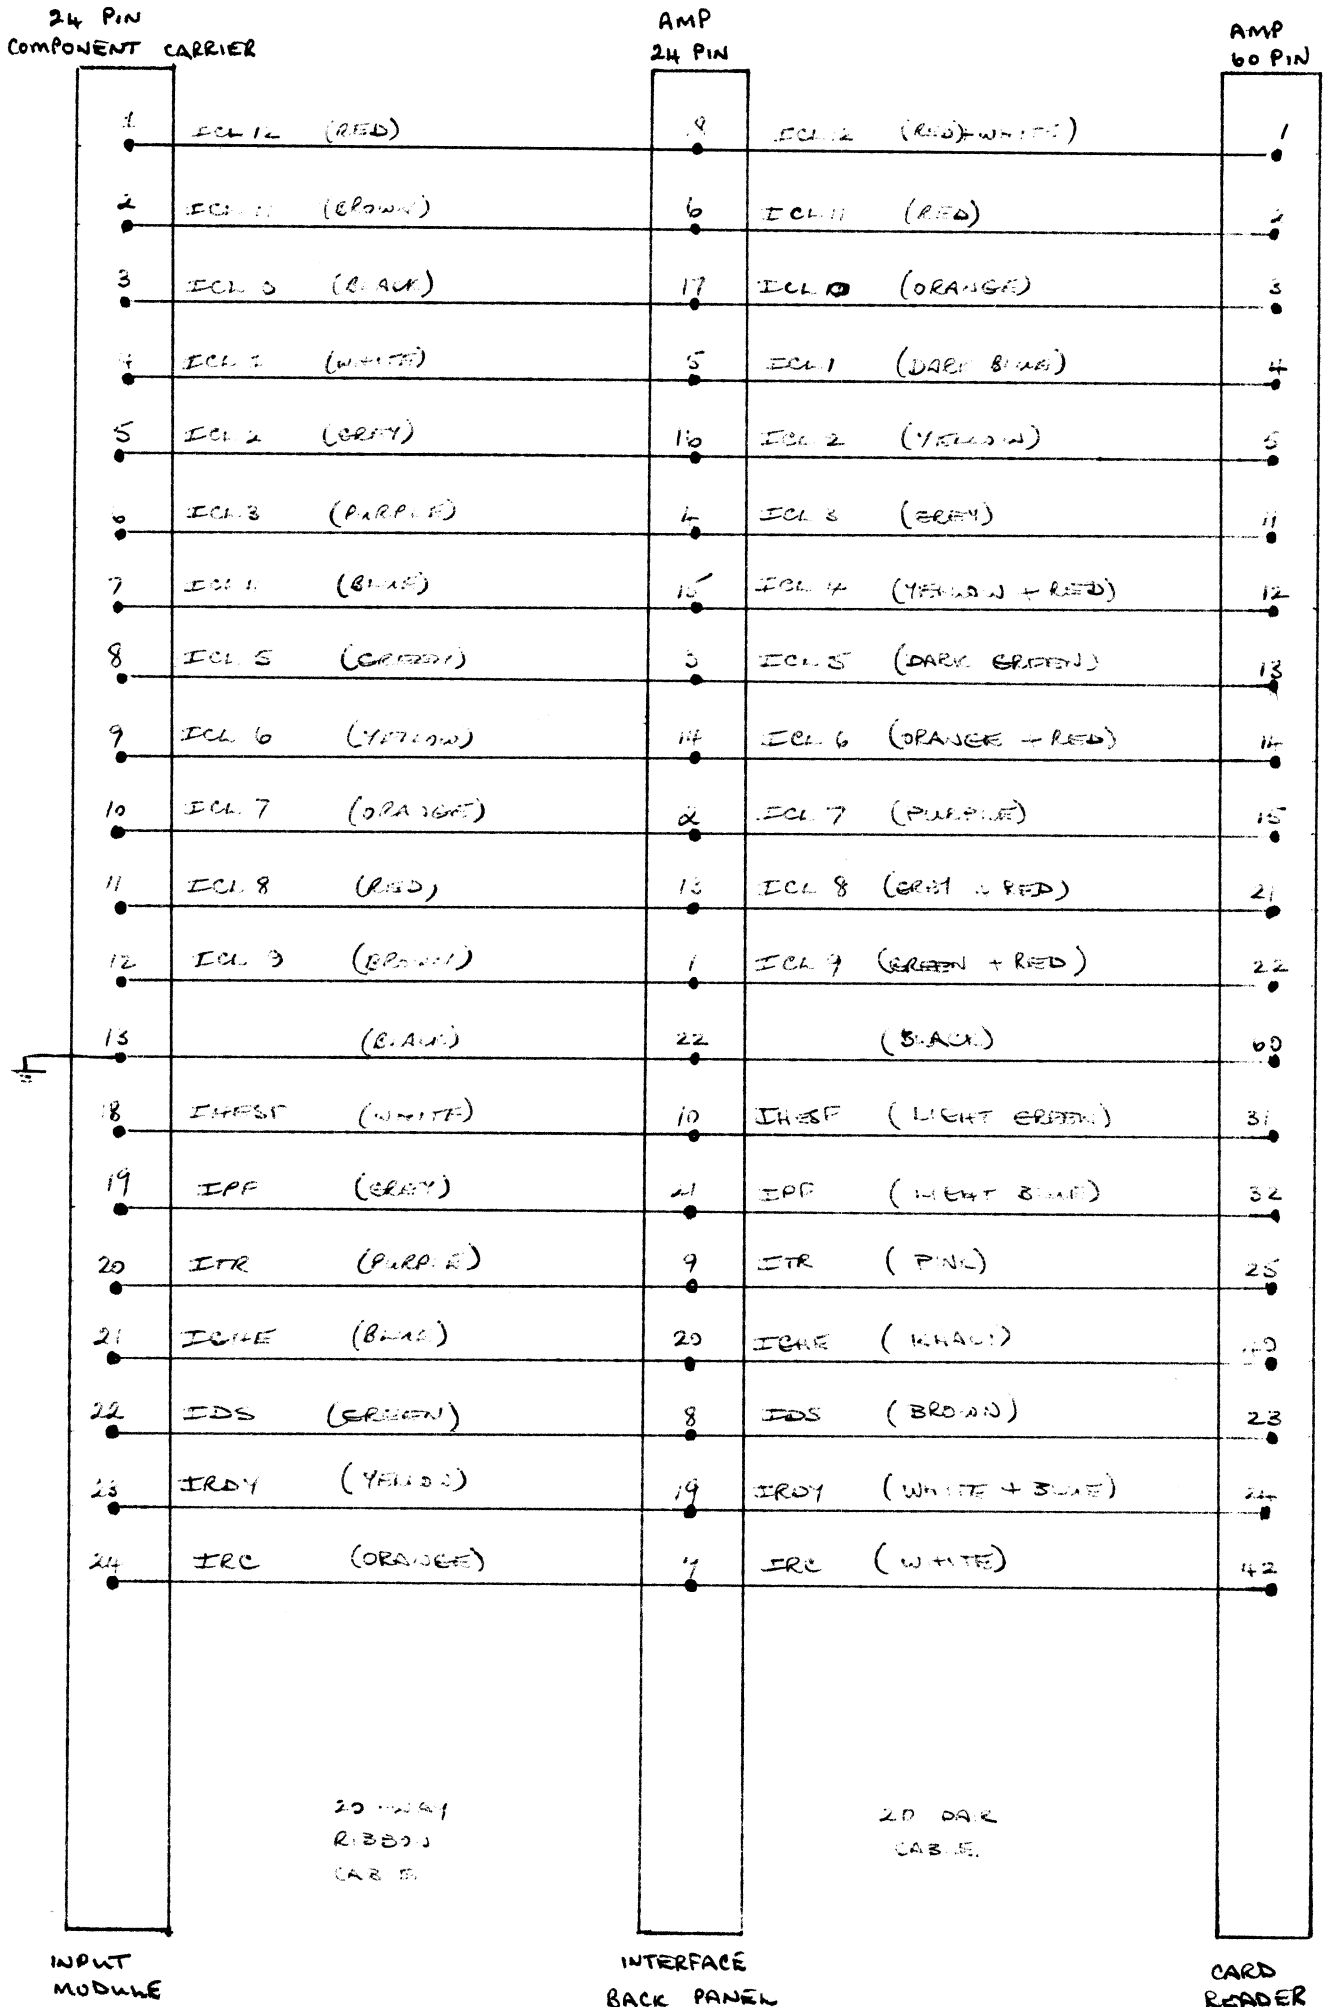 24 PIN
COMPONENT CARRIER
AMP
24 PIN
AMP
60 PIN
1 ICL 12 (RED) 18 ICL 12 (RED + WHITE) 1
2 ICL 11 (BROWN) 6 ICL 11 (RED) 2
3 ICL 0 (BLACK) 17 ICL 0 (ORANGE) 3
4 ICL 1 (WHITE) 5 ICL 1 (DARK BLUE) 4
5 ICL 2 (GREY) 16 ICL 2 (YELLOW) 5
6 ICL 3 (PURPLE) 4 ICL 3 (GREY) 11
7 ICL 4 (BLUE) 15 ICL 4 (YELLOW + RED) 12
8 ICL 5 (GREEN) 3 ICL 5 (DARK GREEN) 13
9 ICL 6 (YELLOW) 14 ICL 6 (ORANGE + RED) 14
10 ICL 7 (ORANGE) 2 ICL 7 (PURPLE) 15
11 ICL 8 (RED) 13 ICL 8 (GREY + RED) 21
12 ICL 9 (BROWN) 1 ICL 9 (GREEN + RED) 22
13 (BLACK) 22 (BLACK) 60
18 IHESF (WHITE) 10 IHESF (LIGHT GREEN) 31
19 IPF (GREY) 21 IPF (LIGHT BLUE) 32
20 ITR (PURPLE) 9 ITR (PINK) 25
21 ICHE (BLUE) 20 ICHE (KHAKI)
22 IDS (GREEN) 8 IDS (BROWN) 23
23 IRDY (YELLOW) 19 IRDY (WHITE + BLUE) 24
24 IRC (ORANGE) 7 IRC (WHITE) 42
20 WAY
RIBBON
CABLE
20 PAIR
CABLE
INPUT
MODULE
INTERFACE
BACK PANEL
CARD
READER